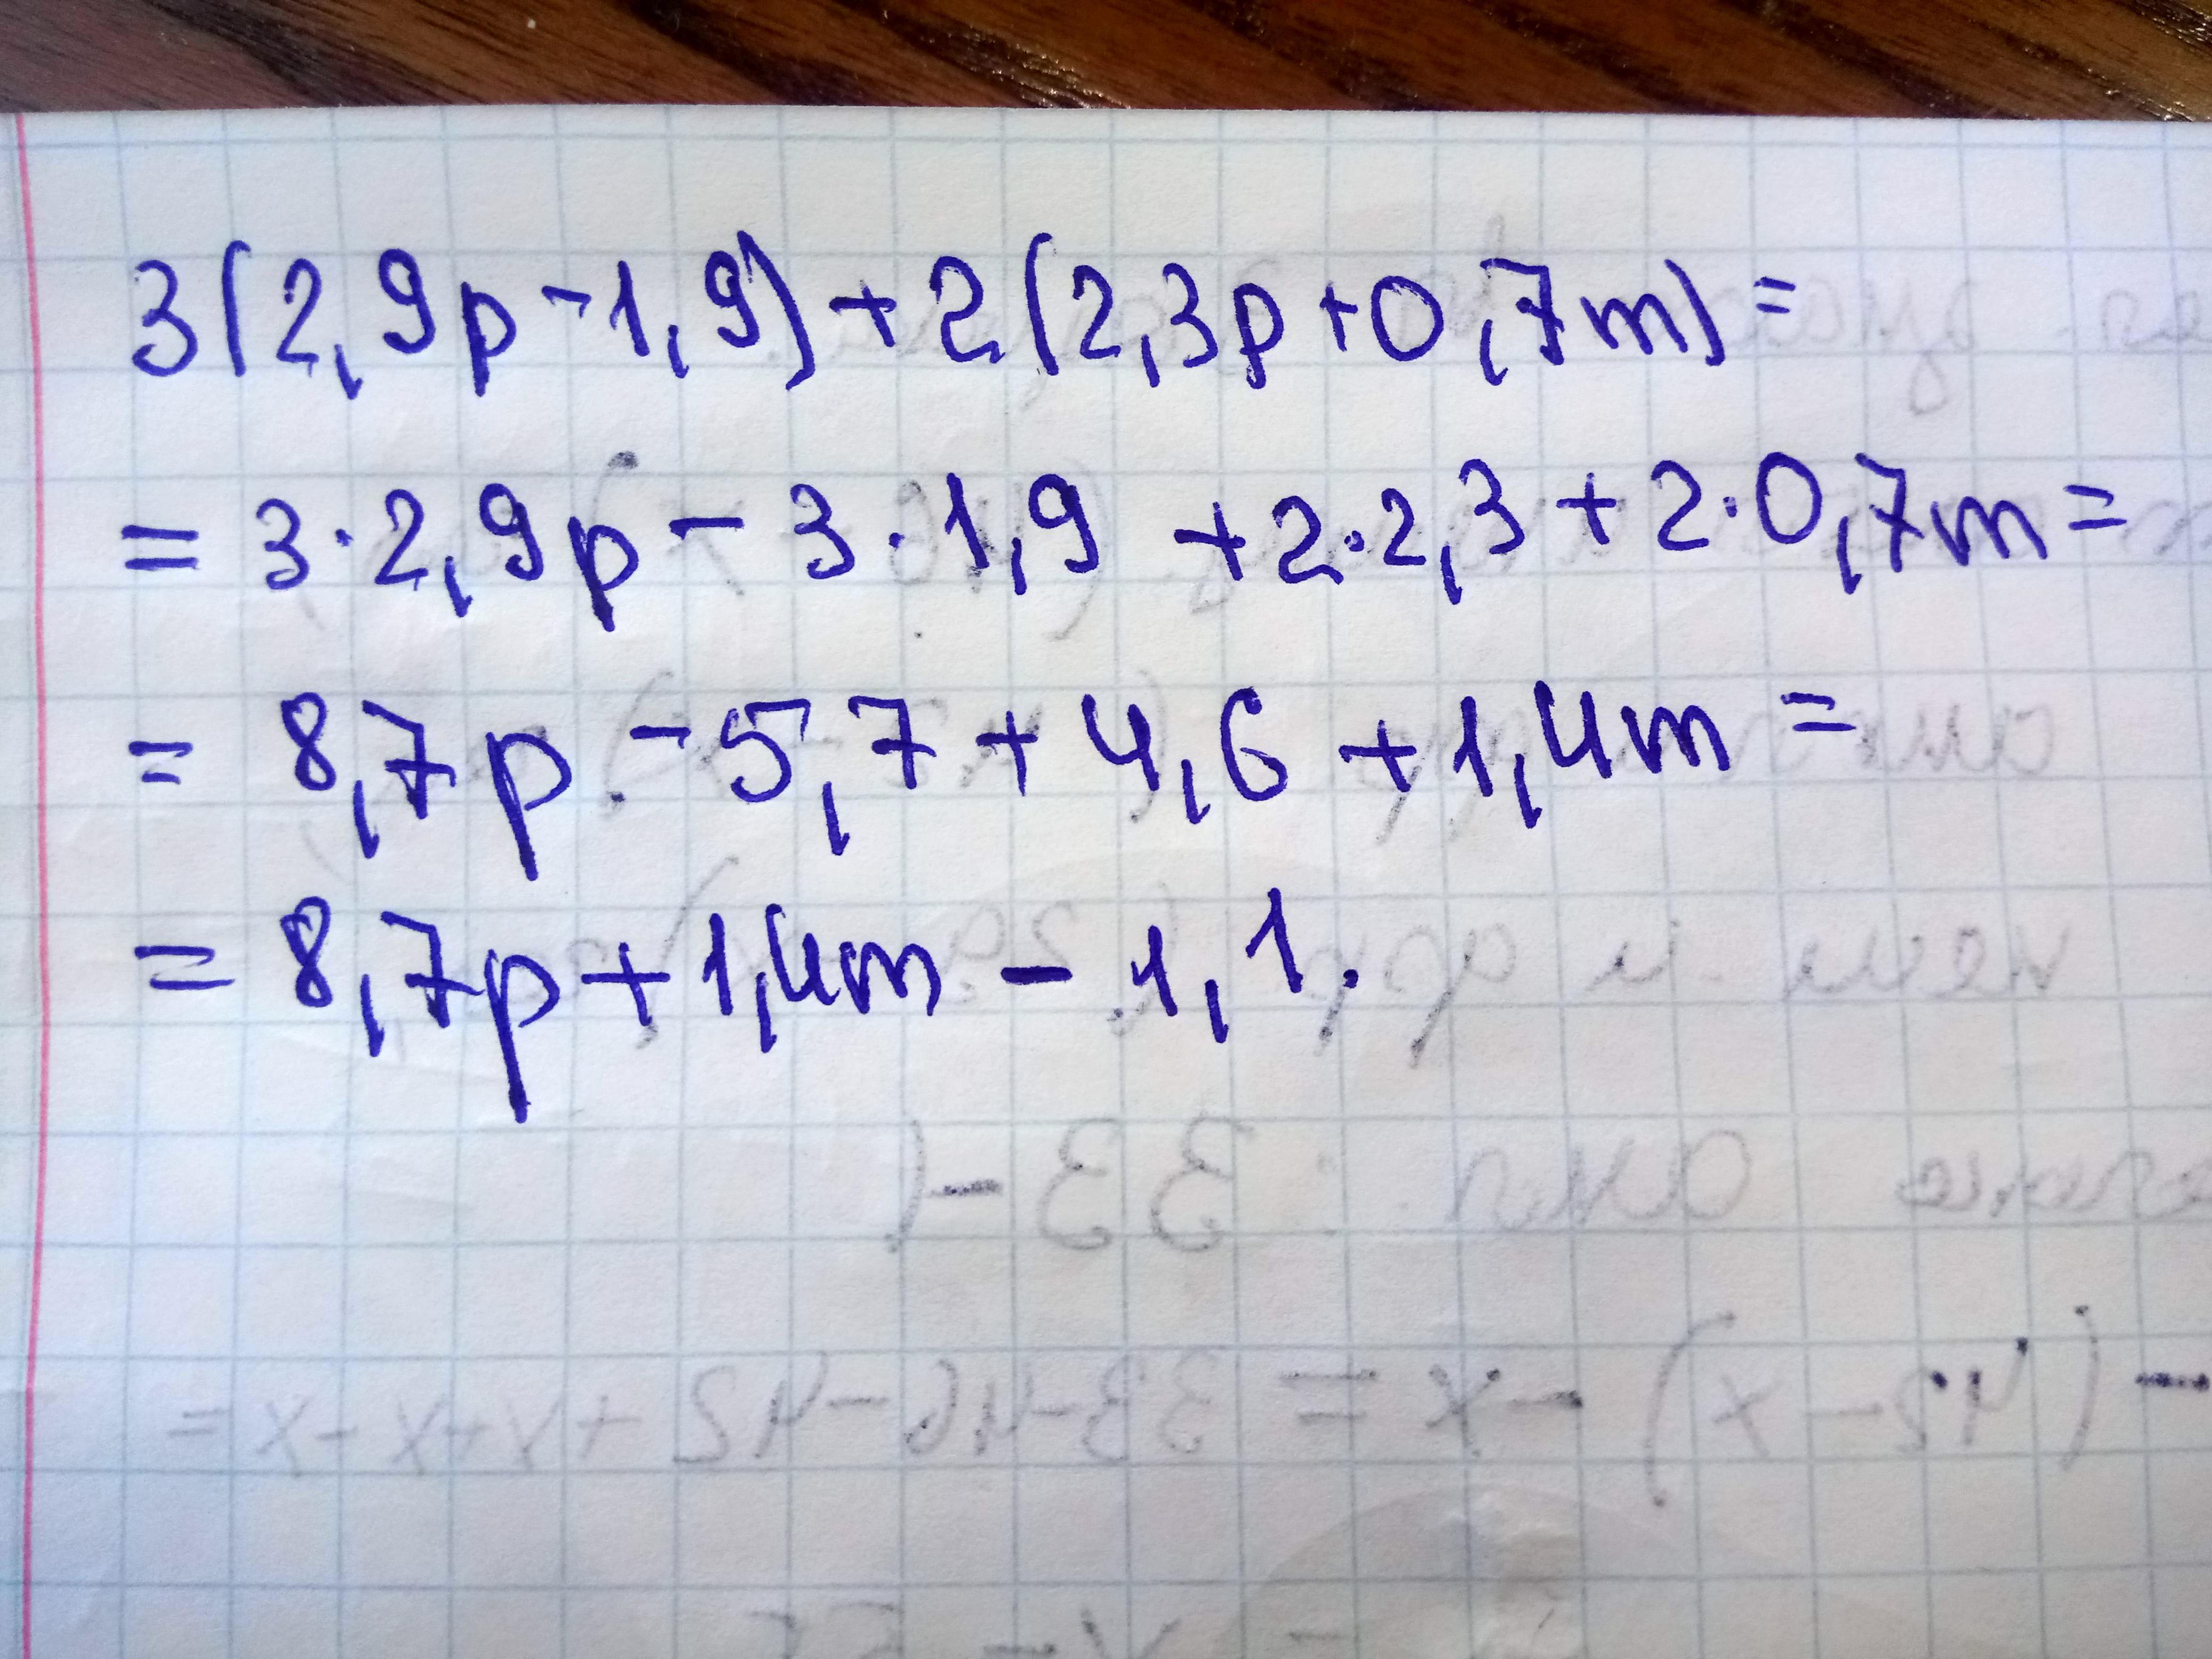 3(2,9p-1,9)+2(2,3p+0,7m)=
=3·2,9p-3·1,9+2·2,3+2·0,7m=
=8,7p-5,7+4,6+1,4m=
=8,7p+1,4m-1,1.